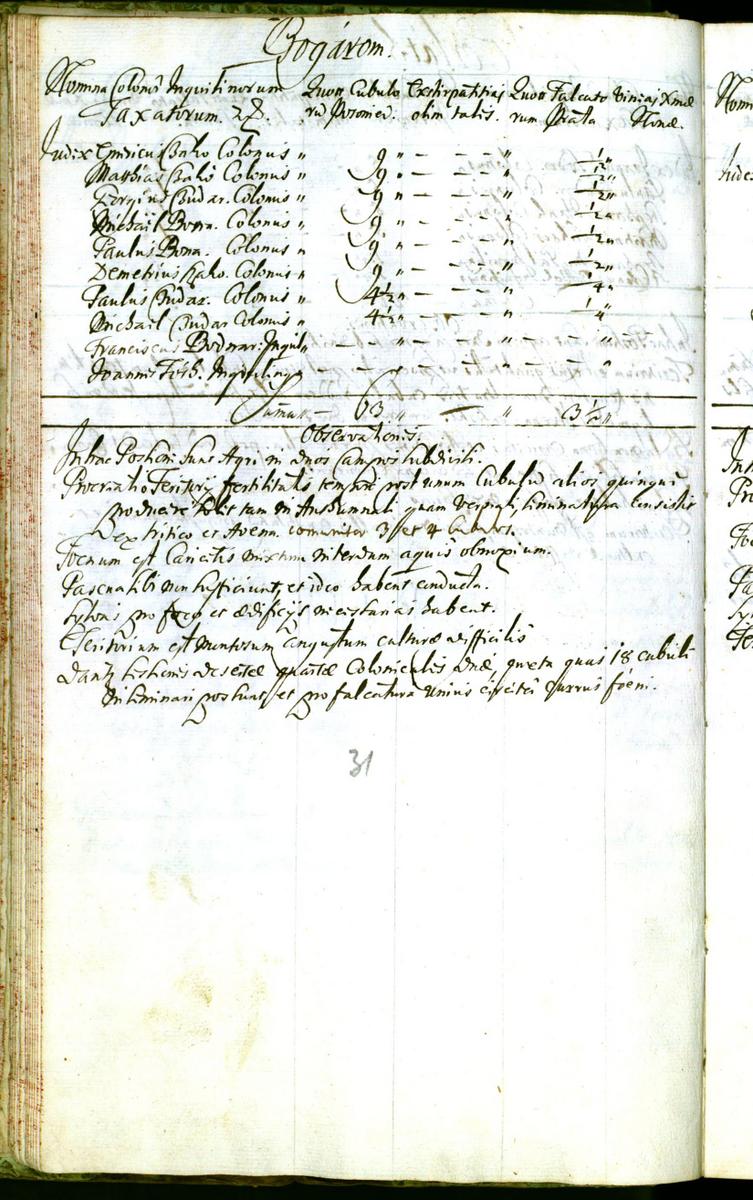 Bogárom.
Nomina Colonor Inquilinorum Quott Cubulo Exstirpatitias Quott Falcato Vinias Xmæ
Taxatorum. rũ Posonien. olim talis. rum Prata Nonæ.
Judix Emricus Bako Colonus „ 9 „ — — — „ ½ „
Matthias Bako Colonus „ 9 „ — — — „ ½ „
Georgius Budar. Colonus „ 9 „ — — — „ ½ „
Michaël Bona. Colonus „ 9 „ — — — „ ½ „
Paulus Bona. Colonus „ 9 „ — — — „ ½ „
Demetrius Bako. Colonus „ 9 „ — — — „ ½ „
Paulus Budar. Colonus „ 4½ „ — — — „ ¼ „
Michaël Budar Colonus „ 4½ „ — — — „ ¼ „
Franciscus Bodnar: Inquil „ — — „ — — — „ — — „
Joannes Inquilinus — — — „ — — — „ — — „
Summa „ — 63 „ — „ 3½ „
Observationes.
In hac Possione sunt Agri in duos Campos subdivisi.
Procreatio Teritorij fertilitatis tempore post unum Cubulũ alios quinque
producere solet tam in Autumnali quam Vernali, seminatura consistit
ex tritico et Avena comuniter 3 et 4 Cubulos.
Foenum est Caricetis mixtum interdum aquis obnoxium.
Pascua sibi non sufficiunt, et ideo habent conducta.
Sylvas pro foco et ædificijs necessarias habent.
Teritorium est montosum Angustum culturæ difficilis
Dant desertæ quartæ Colonicalis Dnæ, quas 18 cubuli
inseminari possunt, et pro falcatura unius circiter currus foeni.
31